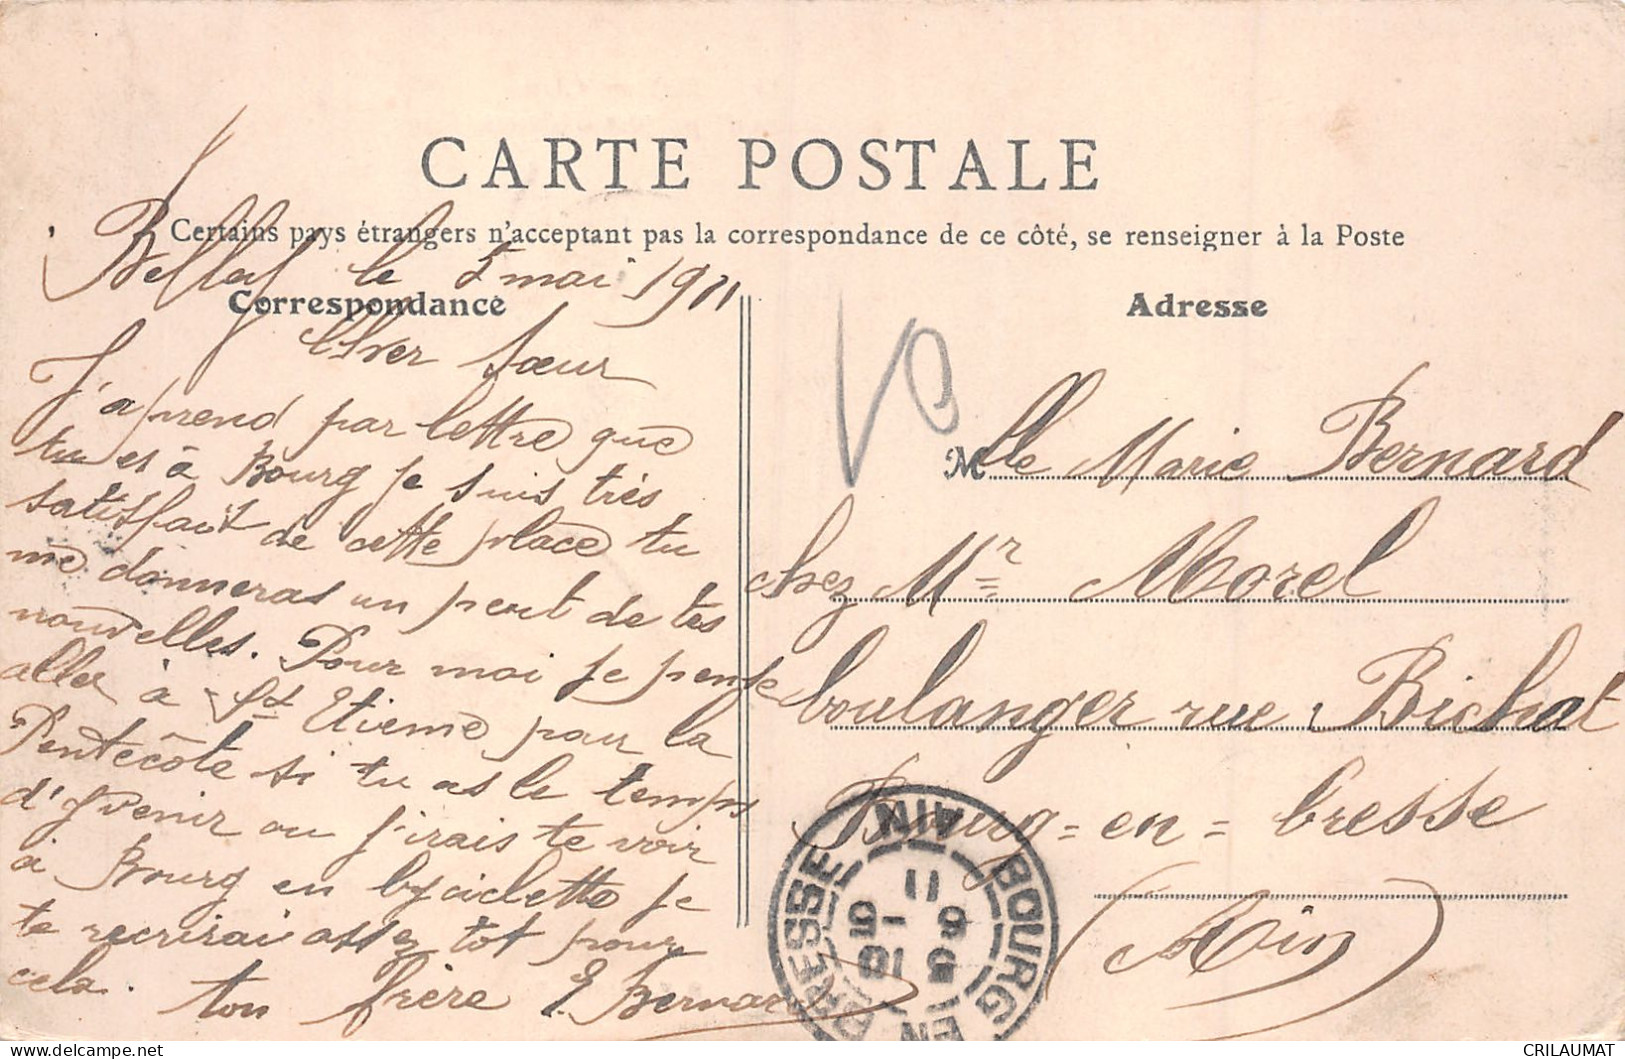 CARTE POSTALE
Certains pays étrangers n'acceptant pas la correspondance de ce côté, se renseigner à la Poste
Correspondance
Adresse
Belley le 5 mai 1911
Cher Sœur
J'aprend par lettre que
tu es à Bourg je suis très
satisfait de cette place tu
me donneras un peut de tes
nouvelles. Pour moi je pense
aller à St Etiene pour la
Pentecôte si tu as le temps
d'y venir ou j'irais te voir
à Bourg en byciclette je
te recrirai assez tot pour
cela. ton frère E. Bernard
10
Mlle Marie Bernard
chez Mr Morel
boulanger rue Bichat
Bourg=en=bresse
(Ain)
BOURG EN BRESSE
AIN
CRILAUMAT